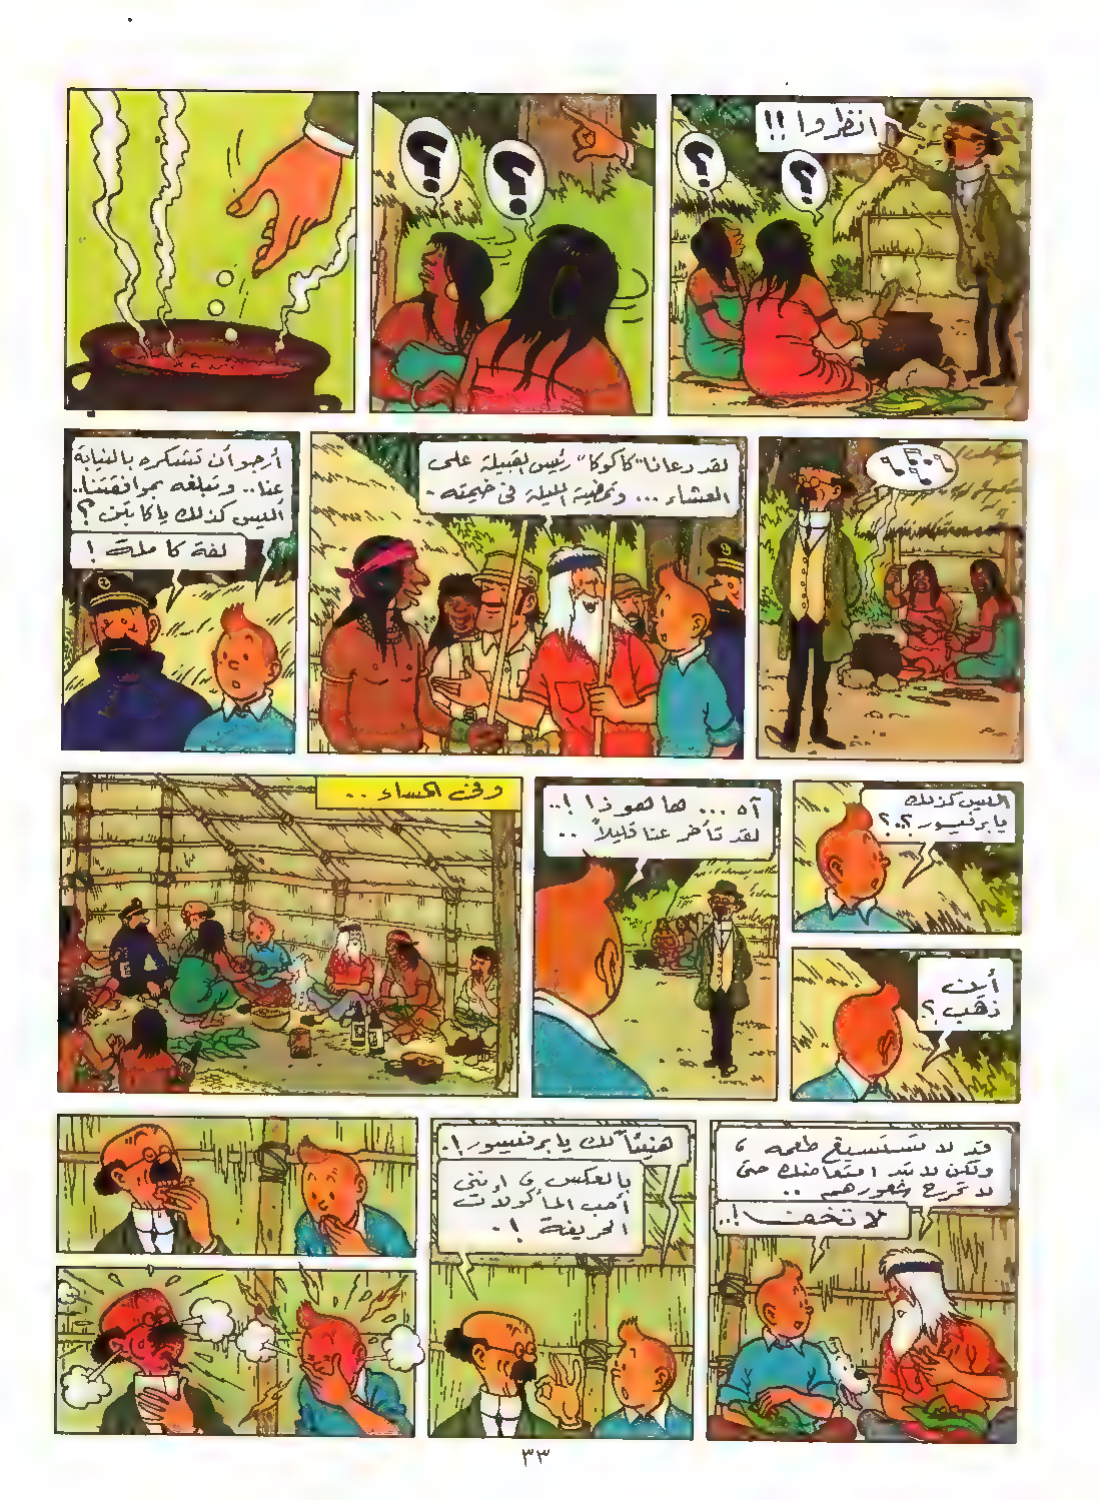 انظروا !!
؟
؟
؟
؟
لقد دعانا "كاكوكا" رئيس القبيلة على
العشاء ... وتمضية الليلة في خيمته .
أرجو أن تشكره بالنيابة
عنا .. وتبلغه بموافقتنا ..
أليس كذلك يا كابتن ؟
لفة كاملة !
أليس كذلك
يا برفيسور ؟.؟
أين
ذهب ؟
آه ... ها هو ذا !..
لقد تأخر عنا قليلاً ..
وفي المساء ..
قد لا تستسيغ طعمه ،
ولكن لا تبد امتعاضك حتى
لا تجرح شعورهم ..
لا تخف !..
هنيئاً لك يا برفيسور !.
بالعكس ، إنني
أحب المأكولات
الحريفة !.
٣٣